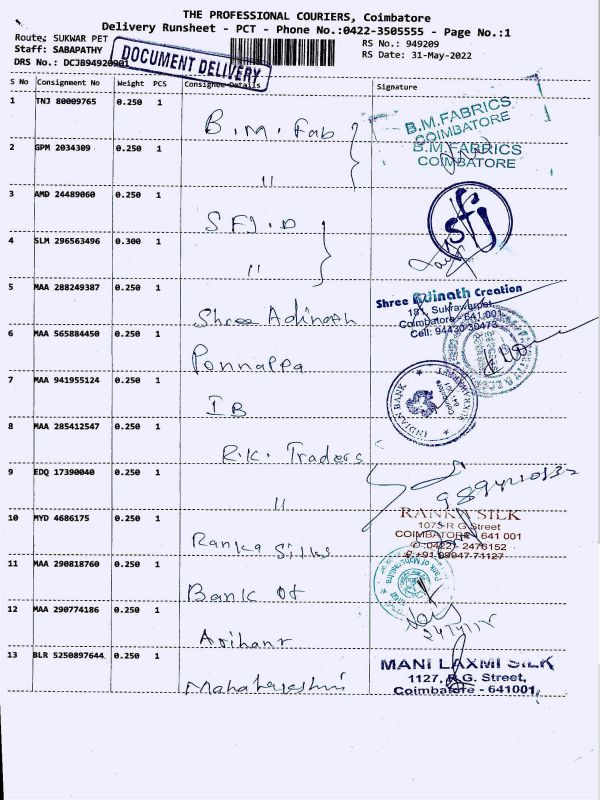 THE PROFESSIONAL COURIERS, Coimbatore
Delivery Runsheet - PCT - Phone No.:0422-3505555 - Page No.:1
Route: SUKWAR PET
RS No.: 949209
Staff: SABAPATHY
RS Date: 31-May-2022
DRS No.: DCJB94920901
DOCUMENT DELIVERY
S No Consignment No Weight PCS Consignee Details Signature
1 TNJ 80009765 0.250 1 B.M. Fab
B.M.FABRICS
COIMBATORE
2 GPM 2034309 0.250 1 "
B.M.FABRICS
COIMBATORE
3 AMD 24489060 0.250 1 SFJ.D
sfj
4 SLM 296563496 0.300 1 "
5 MAA 288249387 0.250 1 Shree Adinath
Shree Creation
181, Sukrawarpet,
Coimbatore - 641 001
Cell: 94430 30473
6 MAA 565884450 0.250 1 Ponnappa
7 MAA 941955124 0.250 1 IB
INDIAN BANK
8 MAA 285412547 0.250 1 R.K. Traders
9 EDQ 17390040 0.250 1 "
10 MYD 4686175 0.250 1 Ranka Silks
RANKA SILK
1073-R G Street
COIMBATORE - 641 001
0422- 2476152
+91 99947 71127
11 MAA 290818760 0.250 1 Bank of
Bank of Maharashtra
12 MAA 290774186 0.250 1 Arihant
13 BLR 5250897644 0.250 1
MANI LAXMI SILK
1127, R.G. Street,
Coimbatore - 641001.